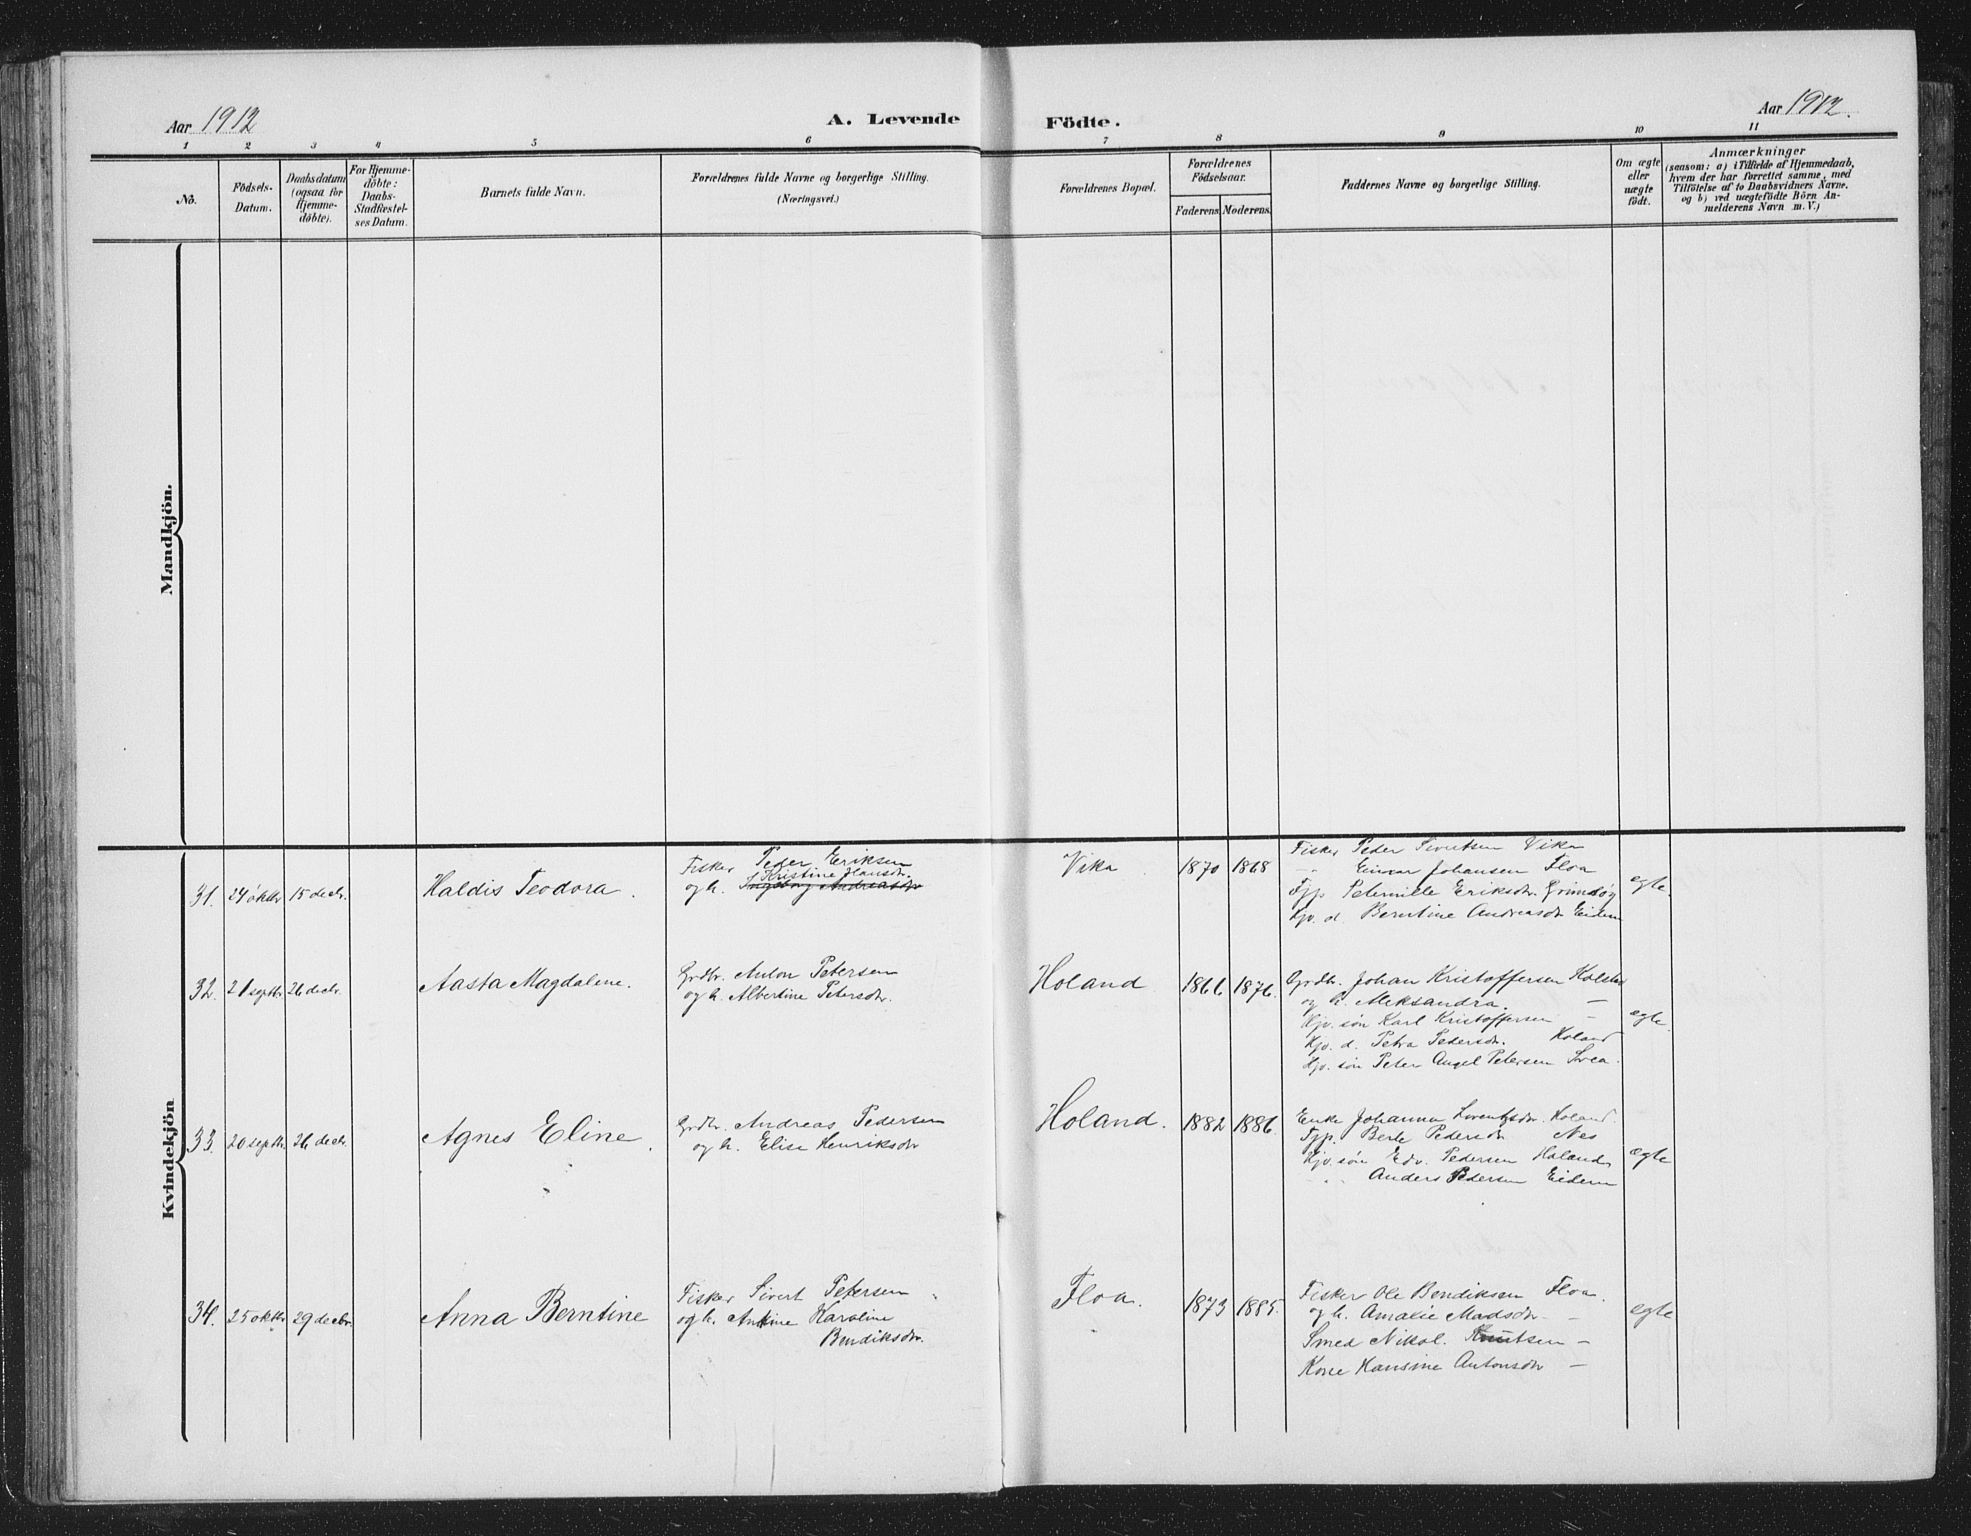 Aar 1912
A. Levende
Födte.
Aar 1912.
1 2 3 4 5 6 7 8 9 10 11
No.
Födsels-
Datum.
Daabsdatum
(ogsaa for
Hjemme-
döbte).
For Hjemme-
döbte:
Daabs-
Stadfæstel-
ses Datum.
Barnets fulde Navn.
Forældrenes fulde Navne og borgerlige Stilling.
(Næringsvei.)
Forældrenes Bopæl.
Forældrenes
Födselsaar.
Faderens. Moderens.
Faddernes Navne og borgerlige Stilling.
Om ægte
eller
uægte
födt.
Anmærkninger
(saasom: a) i Tilfælde af Hjemmedaab,
hvem der har forrettet samme, med
Tilföielse af to Daabsvidners Navne.
og b) ved uægtefödte Börn An-
melderens Navn m. V.)
Mandkjön.
Kvindekjön
31. 24 oktbr 15 decbr. Haldis Teodora.
Fisker Peder Eriksen
Kristine Hansdr.
og h. Ingeborg Andreasdr
Vika 1870 1868
Fisker Peder Sivertsen Vika
-"- Einar Johansen Floa
Fgp. Peternille Eriksdr. Grimsöy
Gjv. d. Berntine Andreasdr Eidem
egte.
32. 21 septbr 26 decbr. Aasta Magdalene.
Grdbr. Anton Petersen
og h. Albertine Petersdr.
Holand 1866 1876.
Grdbr. Johan Kristoffersen
og h. Aleksandra. —
Gjv. søn Karl Kristoffersen —
Gjv. d. Petra Pedersdr. Holand
Gjv. søn Peter Angel Petersen
egte.
33. 20 septbr. 26 decbr. Agnes Eline.
Grdbr. Andreas Pedersen
og h. Elise Henriksdr
Holand. 1882 1886.
Enke Johanna Lorentsdr. Holand.
Fgp. Berle Pedersdr Nes
Gjv. søn Edv. Pedersen Holand
-"- Anders Pedersen Eidem
ægte
34. 25 oktbr 29 decbr. Anna Berntine
Fisker Sivert Petersen
og h. Antine Karoline
Bendiksdr.
Floa. 1873 1885.
Fisker Ole Bendiksen Floa.
og h. Amalie Madsdr. —
Smed Nikol. Knutsen —
Kone Hansine Antonsdr —
egte